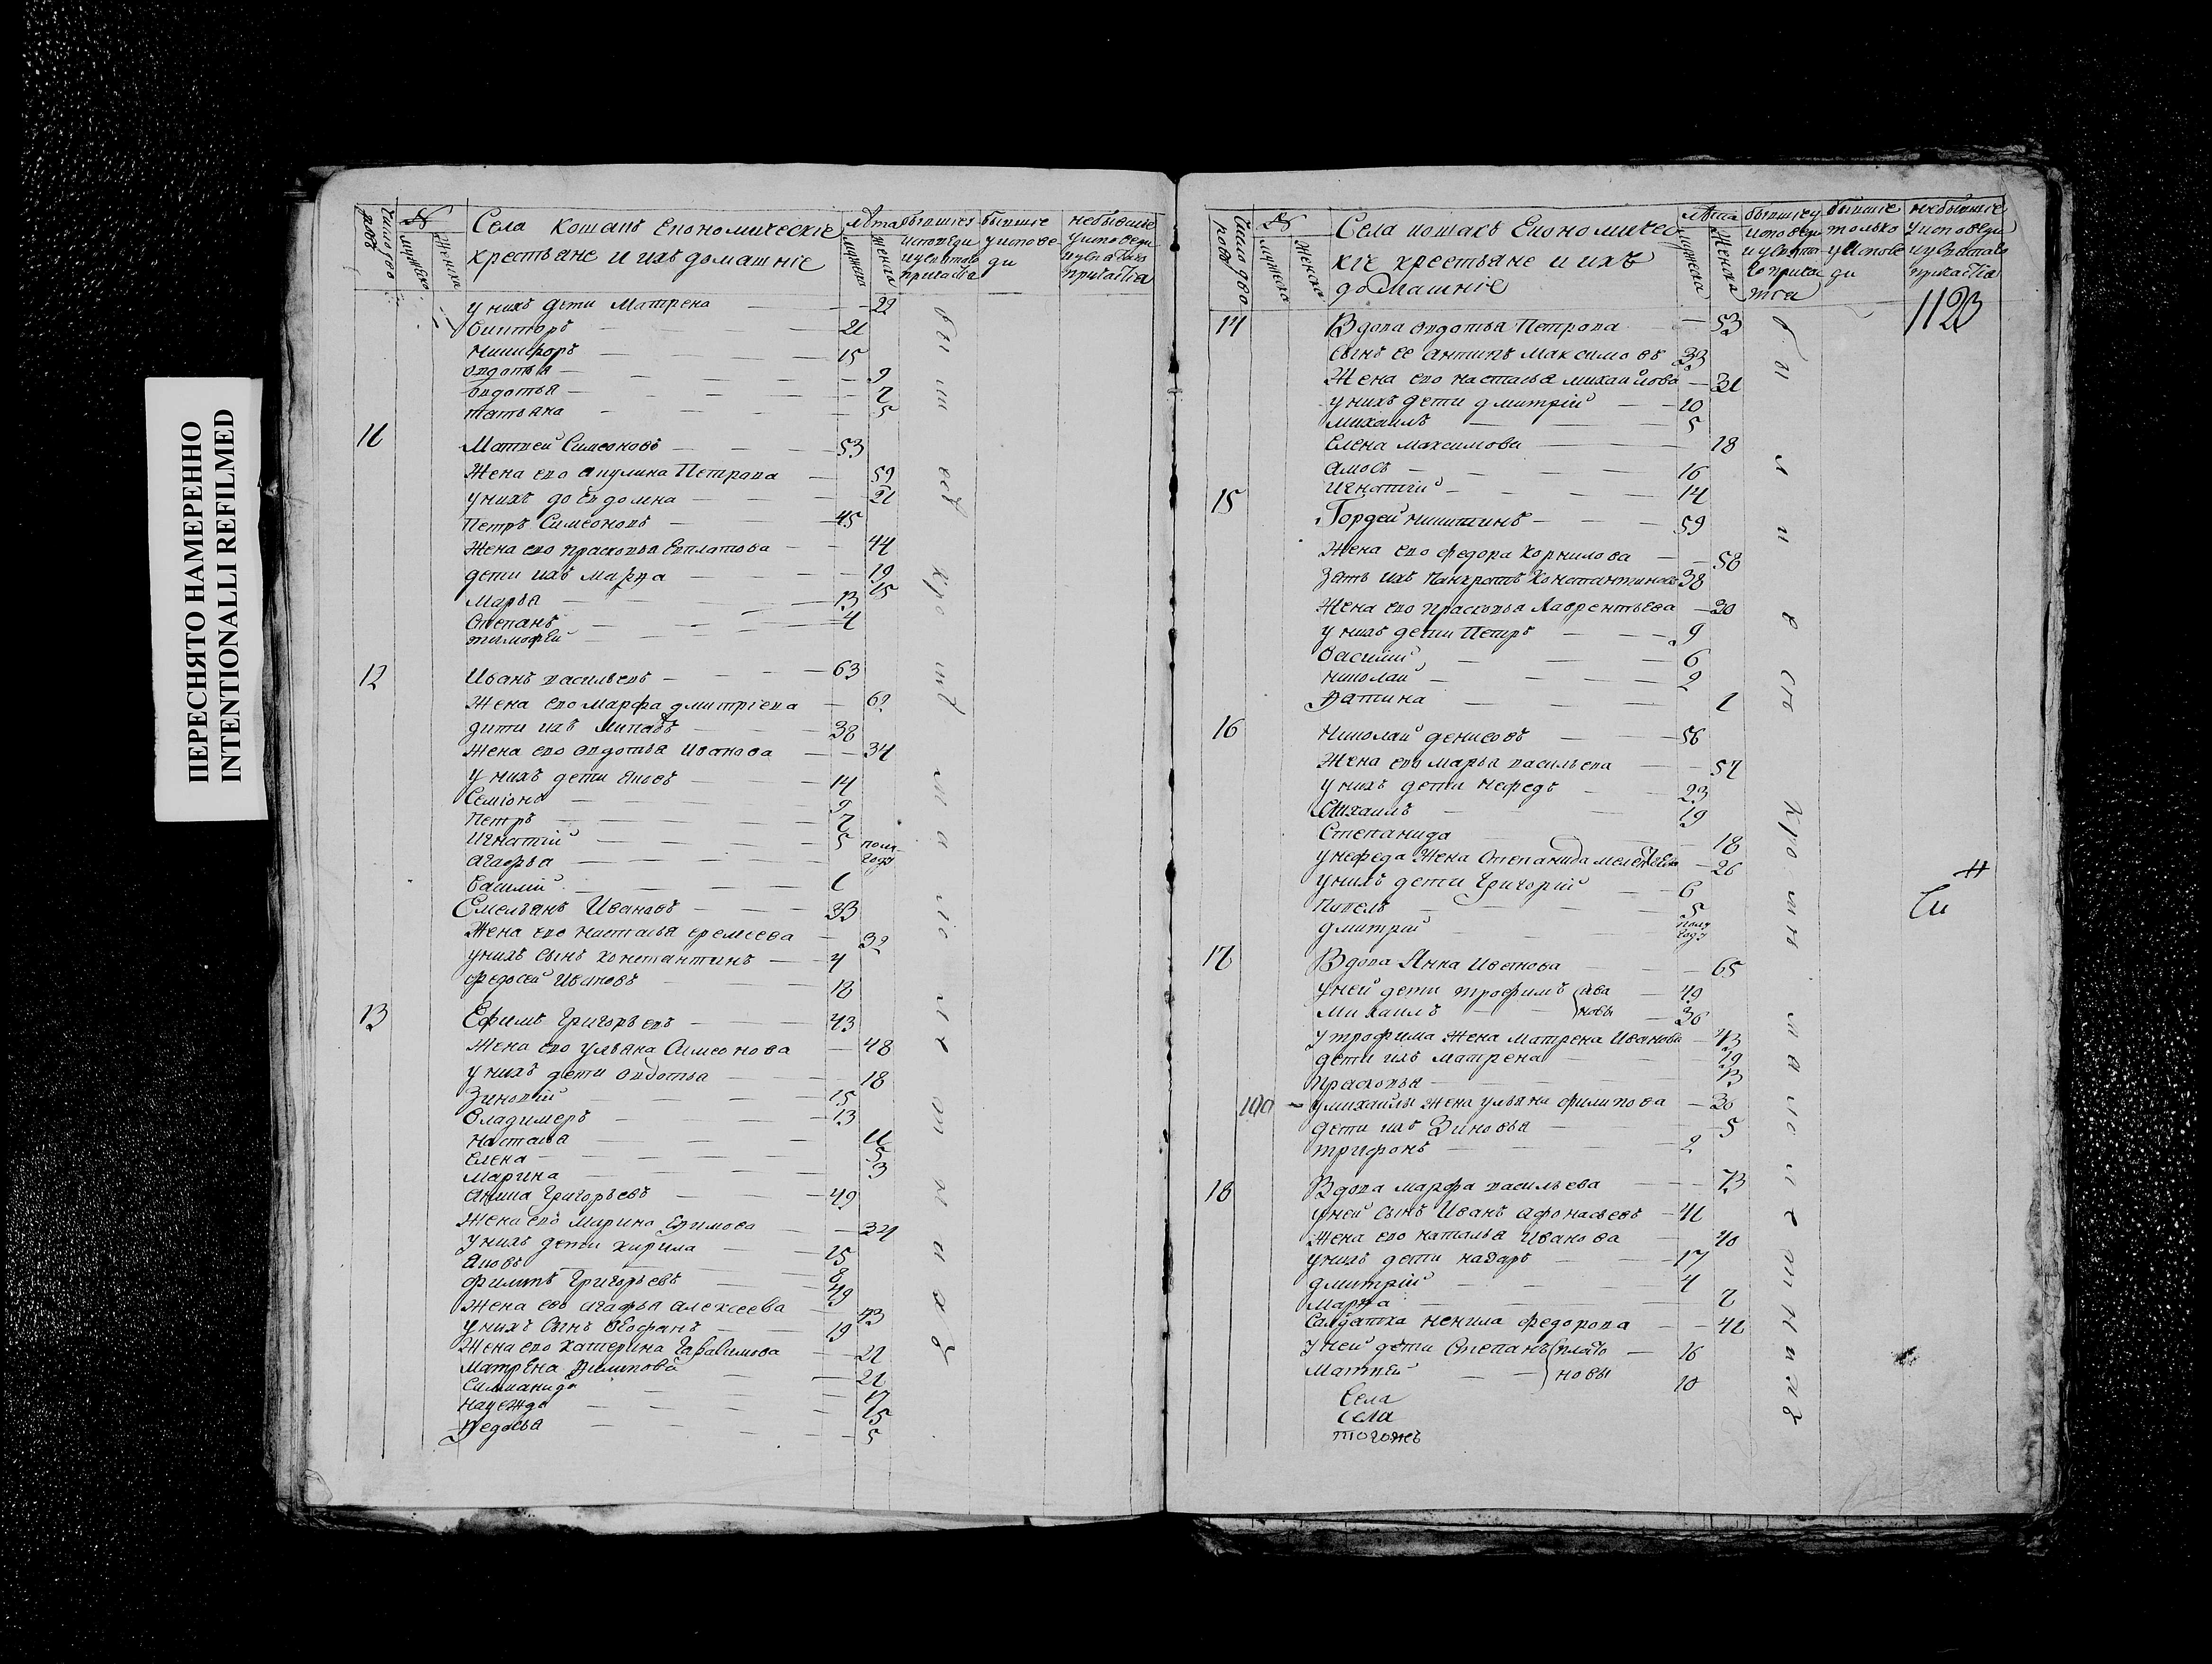 ПЕРЕСНЯТО НАМЕРЕННО
INTENTIONALLI REFILMED
Число дво ровъ
№
мужеска
женска
Села Кошакъ Економическіе
крестьяне и ихъ домашніе
лѣта
мужеска
женска
бывшіе у исповеди и святаго причастія
бывшіе у исповеди
небывшіе у исповеди и святаго причастія
у нихъ дети Матрена — 22
Викторъ — 21
Никифоръ — 15
овдотья — 9
овдотья — 7
татьяна — 5
11 Матвей Симеоновъ — 53
Жена ево Акулина Петрова — 59
у нихъ до Евдокиа — 21
Петръ Симеоновъ — 45
Жена ево прасковья Евплатова — 44
дети ихъ Марфа — 19
Марья — 15
Степанъ — 13
тимофей — 4
12 Иванъ васильевъ — 63
Жена ево Марфа дмитріева — 62
дети ихъ — 38
Жена ево овдотья Иванова — 34
у нихъ дети Яковъ — 14
Семіонъ — 9
Петръ — 7
Игнатій — 5
Агафья — полъ году
Василій — 1
Емельянъ Ивановъ — 33
Жена ево настасья еремеева — 32
у нихъ сынъ константинъ — 4
федосей Ивановъ — 18
13 Ефимъ Григорьевъ — 43
Жена ево ульяна Симеонова — 48
у нихъ дети овдотья — 18
Зиновій — 15
Владимеръ — 13
настасья — 11
Елена — 5
Марина — 3
Григорьевъ — 49
Жена ево Марина Ефимова — 34
У нихъ дети кирила — 15
Яковъ — 8
филипъ Григорьевъ — 49
Жена ево агафья алексеева — 43
у нихъ сынъ Феофанъ — 19
Жена ево катерина Гарасимова — 21
Матрена Филипова — 21
надежда — 15
Федосья — 5
бы ли всѣ кро мѣ ма ло лѣ т н и хъ
Число дво ровъ
№
мужеска
Женска
Села кошакъ Економичес
кіе крестьяне и ихъ
домашніе
лѣта
мужеска
Женска
бывшіе у исповеди и святаго причастія
бывшіе только у исповеди
небывшіе у исповеди и у святаго причастія
1123
14 Вдова овдотья Петрова — 53
сынъ ее антипъ Максимовъ 33
Жена ево настасья михаилова — 31
у нихъ дети дмитрій — 10
михаилъ — 5
Елена максимова — 18
амосъ — 16
Игнатій — 14
15 Гордей никитинъ — 59
Жена ево федора корнилова — 58
Зять ихъ Панкратъ Константиновъ 38
Жена ево прасковья Лаврентьева — 30
у нихъ дети Петръ — 9
Василій — 6
николай — 2
Фатина — 1
16 Николай денисовъ — 56
Жена ево Марья васильева — 57
у нихъ дети нефедъ — 23
Михаилъ — 19
Степанида — 18
у нефеда Жена Степанида — 26
у нихъ дети Григорій — 6
Павелъ — 5
дмитрій — полъ году
17 Вдова Анна Иванова — 65
У ней дети трофимъ — 49
Михаилъ — 36
Ива новы
У трофима Жена матрена Иванова — 43
дети ихъ матрена — 19
прасковья — 13
100 — у михаилы жена ульяна филипова — 36
дети ихъ Зиновья — 5
трифонъ — 2
18 Вдова марфа васильева — 73
у ней сынъ Иванъ афонасьевъ — 41
Жена ево наталья Иванова — 40
у нихъ дети назаръ — 17
дмитрій — 4
Марфа — 7
Салдатка ненила федорова — 41
У ней дети Степанъ — 16
Матвей — 10
плато новы
Села
села
тогожъ
бы ли в сь кро мѣ ма ло лѣ т н и хъ